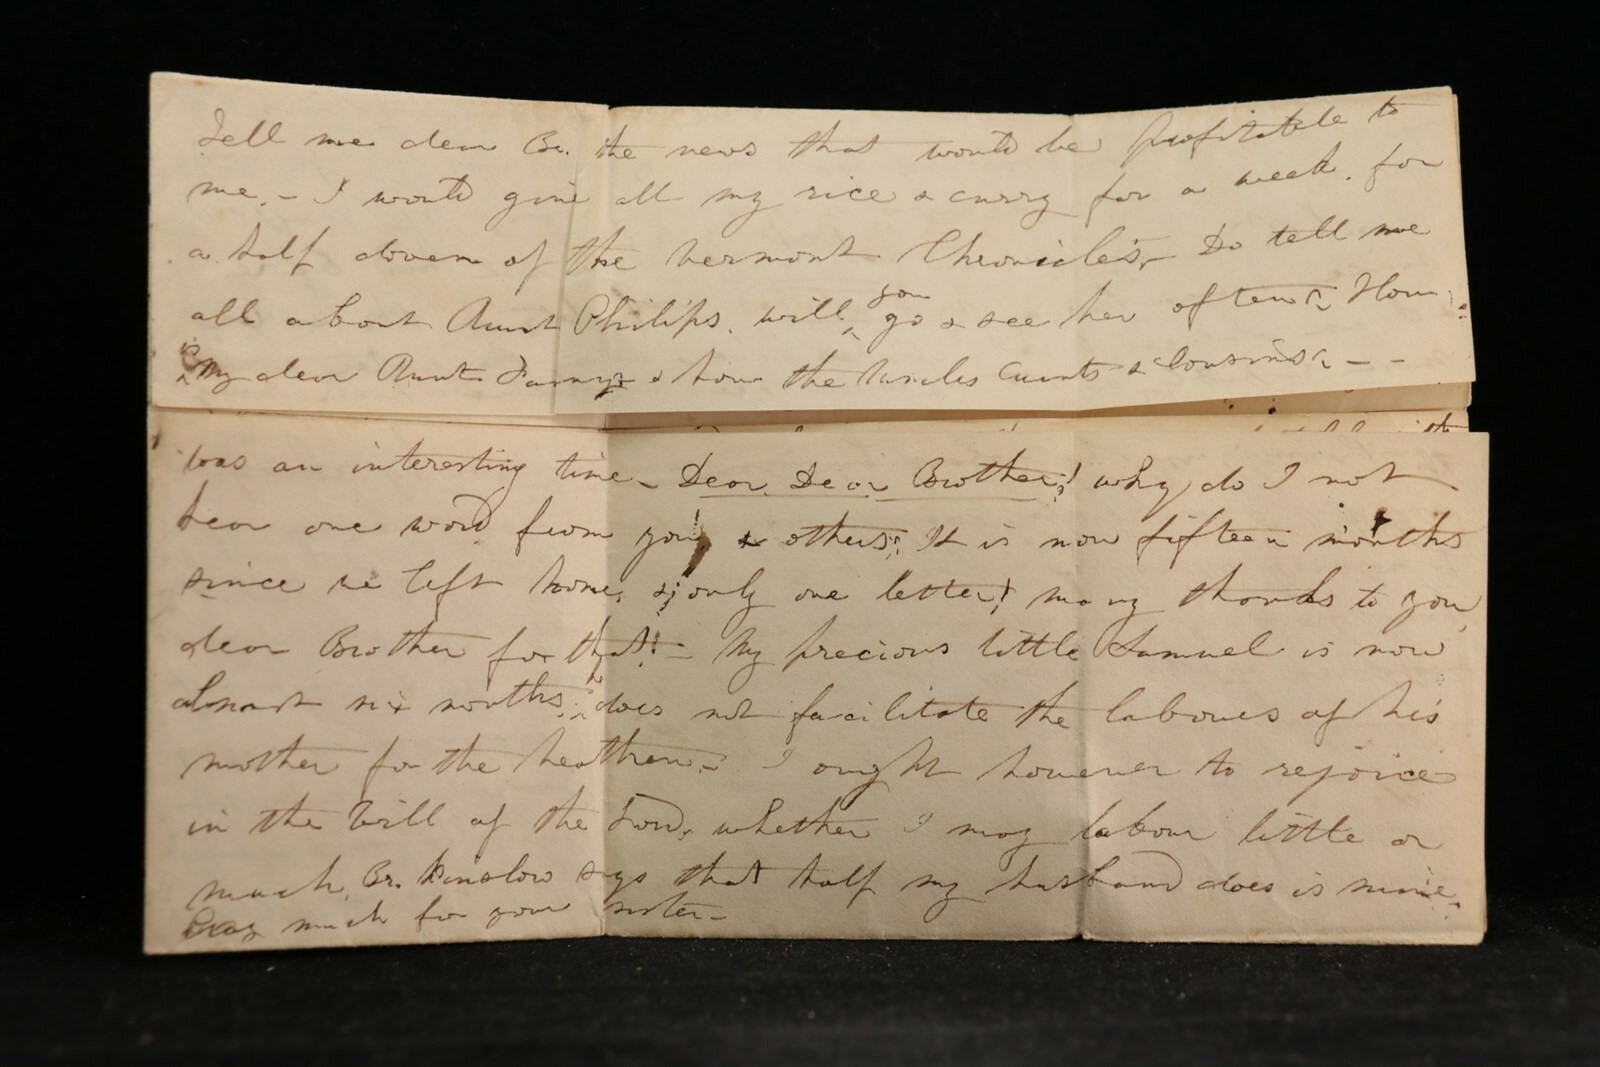 Tell me dear Br. the news that would be profitable to
me. - I would give all my rice & curry for a week, for
a half dozen of the Vermont Chronicles, - Do tell me
all about Aunt Philips, will you go & see her often? How
is my dear Aunt Fanny & how the Uncles Aunts & Cousins? - -
was an interesting time - Dear Dear Brother! why do I not
hear one word from you! & others; It is now fifteen months
since we left home, & only one letter! many thanks to you,
dear Brother for that! - My precious little Samuel is now
almost six months, does not facilitate the labours of his
mother for the heathen. - I ought however to rejoice
in the Will of the Lord, whether I may labour little or
much. Br. Winslow says that half my husband does is mine.
Pray much for your sister -